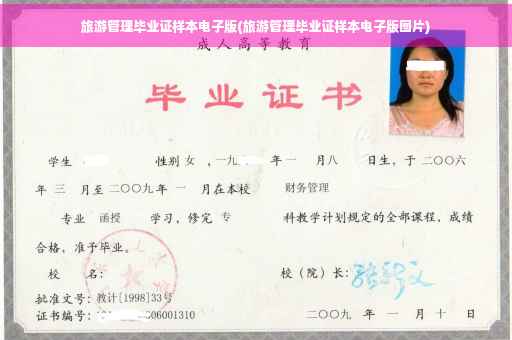 旅游管理毕业证样本电子版(旅游管理毕业证样本电子版图片)
成人高等教育
毕业证书
学生 性别 女 ,一九 年一 月八 日生，于二〇〇六
年 三 月至二〇〇九年 一 月在本校 财务管理
专业 函授 学习，修完 专 科教学计划规定的全部课程，成绩
合格，准予毕业。
校 名： 校（院）长：
批准文号：教计[1998]33号
证书编号： 006001310 二〇〇九 年 一 月 十 日